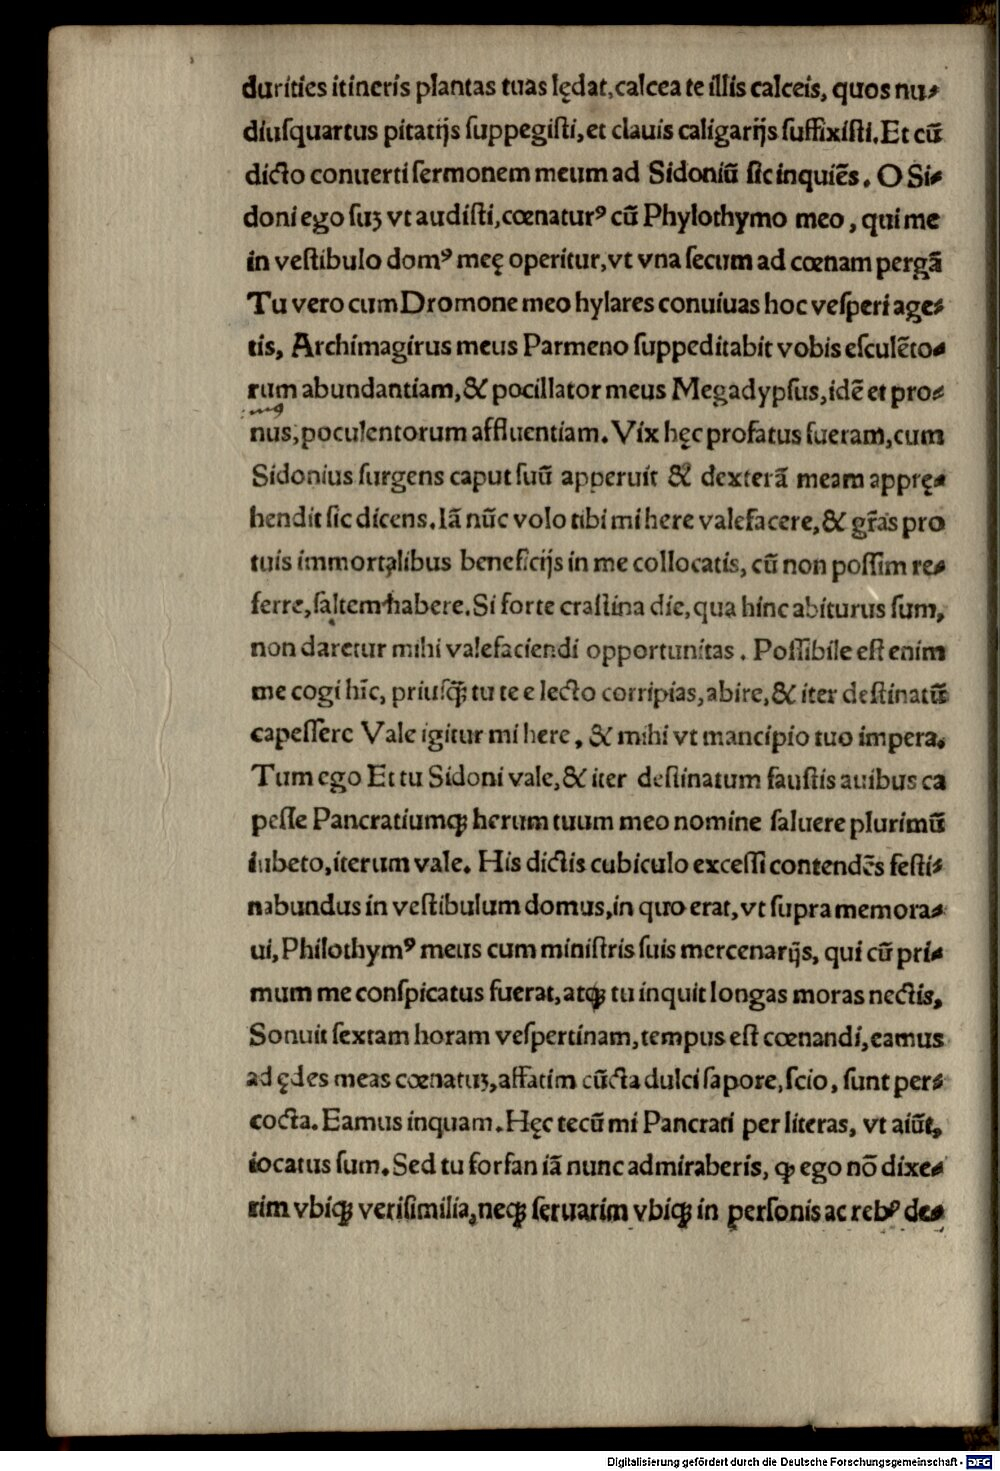 durities itineris plantas tuas lędat, calcea te illis calceis, quos nu⸗
diuſquartus pitatijs ſuppegiſti, et clauis caligarijs ſuffixiſti. Et cū
dicto conuerti ſermonem meum ad Sidoniū ſic inquiēs. O Si⸗
doni ego ſuꝫ vt audiſti, cœnaturꝰ cū Phylothymo meo, qui me
in veſtibulo domꝰ meę operitur, vt vna ſecum ad cœnam pergā
Tu vero cum Dromone meo hylares conuiuas hoc veſperi age⸗
tis, Archimagirus meus Parmeno ſuppeditabit vobis eſculēto⸗
rum abundantiam, & pocillator meus Megadypſus, idē et pro⸗
nus, poculentorum affluentiam. Vix hęc profatus fueram, cum
Sidonius ſurgens caput ſuū apperuit & dexterā meam apprę⸗
hendit ſic dicens. Iā nūc volo tibi mi here valefacere, & gr̄as pro
tuis immortalibus beneficijs in me collocatis, cū non poſſim re⸗
ferre, ſaltem habere. Si forte craſtina die, qua hinc abiturus ſum,
non daretur mihi valefaciendi opportunitas. Poſſibile eſt enim
me cogi hīc, priuſꝙ̄ tu te e lecto corripias, abire, & iter deſtinatū
capeſſere Vale igitur mi here, & mihi vt mancipio tuo impera.
Tum ego Et tu Sidoni vale, & iter deſtinatum fauſtis auibus ca
peſſe Pancratiumqꝫ herum tuum meo nomine ſaluere plurimū
iubeto, iterum vale. His dictis cubiculo exceſſi contendēs feſti⸗
nabundus in veſtibulum domus, in quo erat, vt ſupra memora⸗
ui, Philothymꝰ meus cum miniſtris ſuis mercenarijs, qui cū pri⸗
mum me conſpicatus fuerat, atqꝫ tu inquit longas moras nectis,
Sonuit ſextam horam veſpertinam, tempus eſt cœnandi, eamus
ad ędes meas cœnatuꝫ, affatim cūcta dulci ſapore, ſcio, ſunt per⸗
cocta. Eamus inquam. Hęc tecū mi Pancrati per literas, vt aiūt,
iocatus ſum. Sed tu forſan iā nunc admiraberis, ꝙ ego nō dixe⸗
rim vbiqꝫ veriſimilia, neqꝫ ſeruarim vbiqꝫ in ꝑſonis ac rebꝰ de⸗
Digitalisierung gefördert durch die Deutsche Forschungsgemeinschaft - DFG